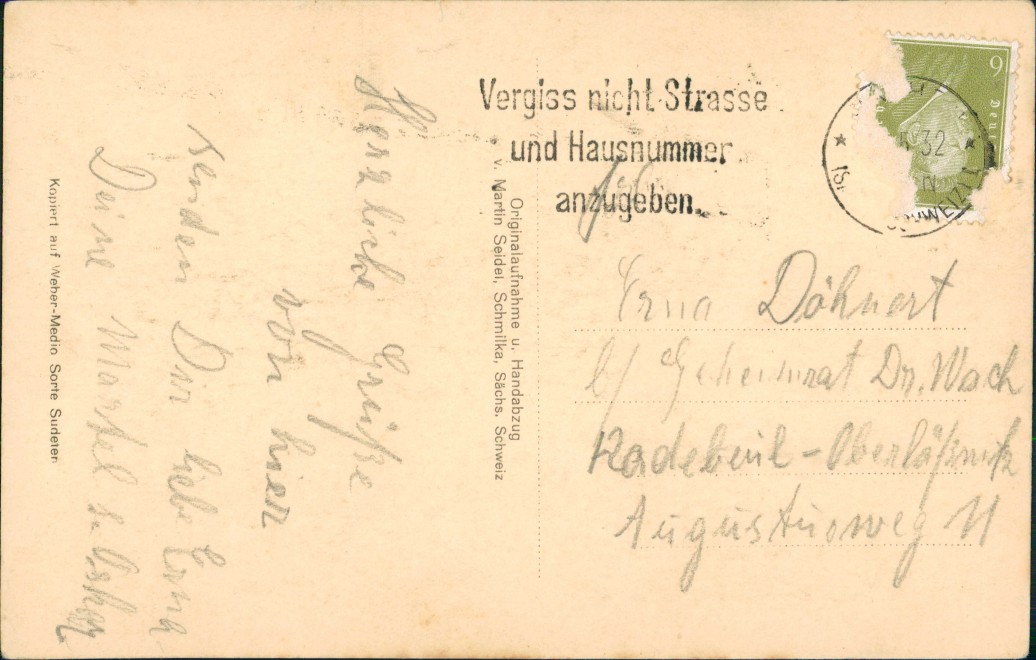 Vergiss nicht Strasse
und Hausnummer
anzugeben.
9
32
Herzliche Grüße
von hier
senden Dir liebe Erna
Deine Martel u. Oskar
Originalaufnahme u. Handabzug
v. Martin Seidel, Schmilka, Sächs. Schweiz
Kopiert auf Weber-Medio Sorte Sudeten
Erna Döhnert
b/ Geheimrat Dr. Wach
Radebeul-Oberlößnitz
Augustusweg 11